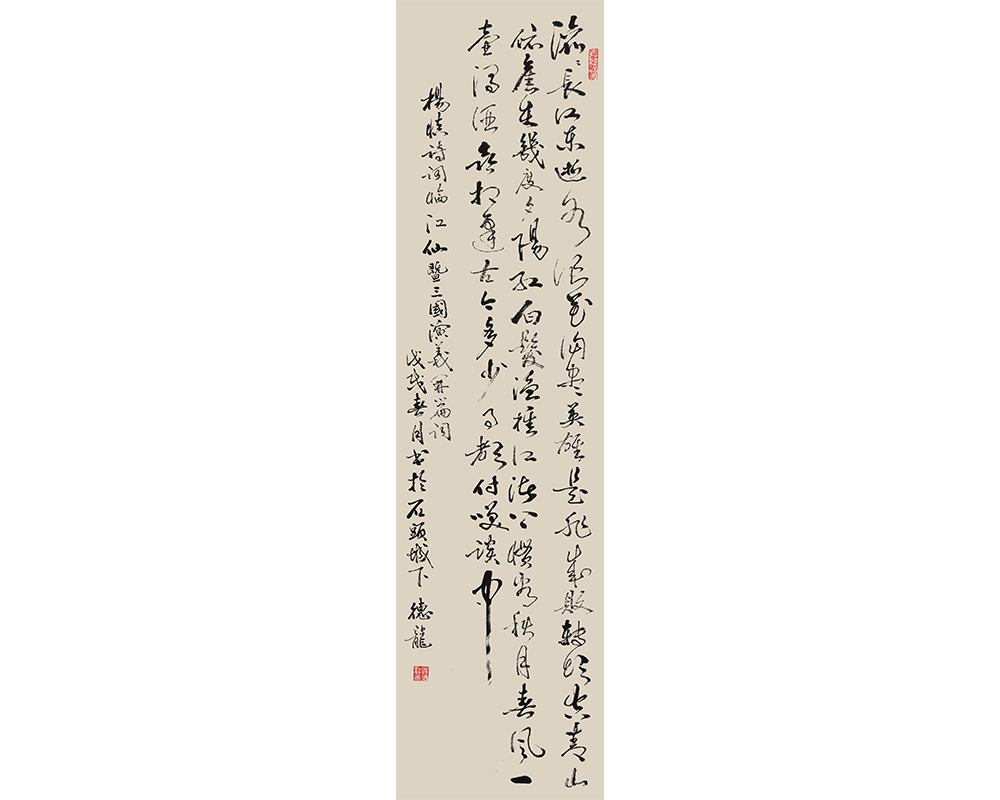 滚〻長江東逝水浪花淘盡英雄是非成敗轉頭空青山
依舊在幾度夕陽紅白髮漁樵江渚上慣看秋月春風一
壺濁酒喜相逢古今多少事都付笑談中
楊慎詩詞臨江仙暨三國演義開篇詞
戊戌春月书於石頭城下 德龍